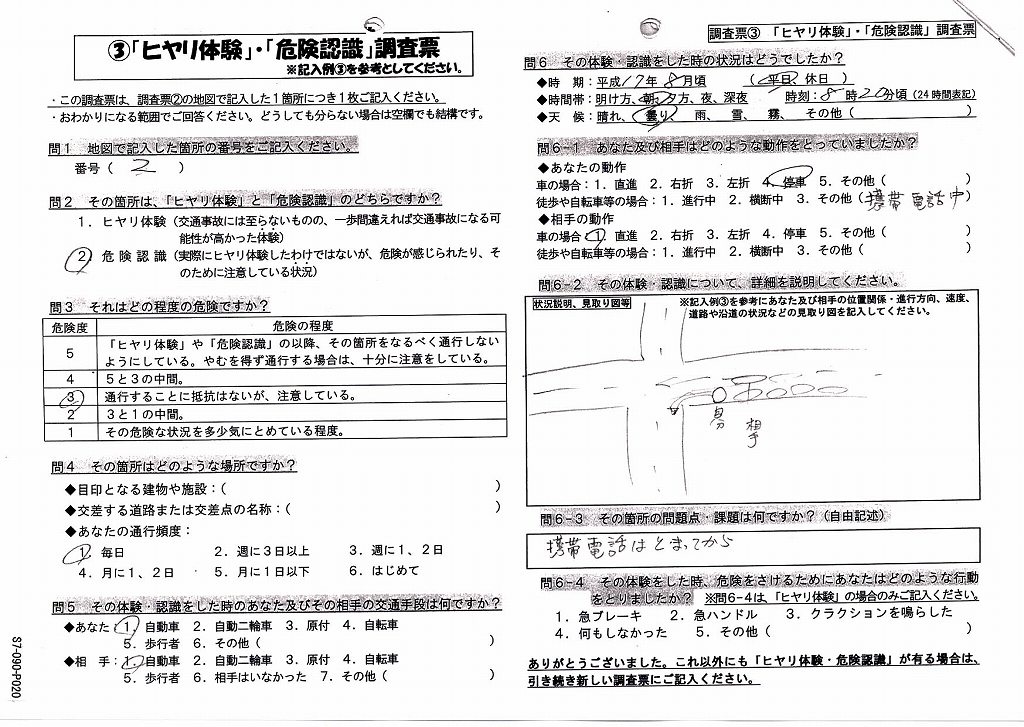 ③「ヒヤリ体験」・「危険認識」調査票
※記入例③を参考としてください。
・この調査票は、調査票②の地図で記入した1箇所につき1枚ご記入ください。
・おわかりになる範囲でご回答ください。どうしても分らない場合は空欄でも結構です。
問1 地図で記入した箇所の番号をご記入ください。
番号( 2 )
問2 その箇所は、「ヒヤリ体験」と「危険認識」のどちらですか?
1.ヒヤリ体験(交通事故には至らないものの、一歩間違えれば交通事故になる可
能性が高かった体験)
2 危険認識(実際にヒヤリ体験したわけではないが、危険が感じられたり、そ
のために注意している状況)
問3 それはどの程度の危険ですか?
危険度 危険の程度
5 「ヒヤリ体験」や「危険認識」の以降、その箇所をなるべく通行しない
ようにしている。やむを得ず通行する場合は、十分に注意をしている。
4 5と3の中間。
3 通行することに抵抗はないが、注意している。
2 3と1の中間。
1 その危険な状況を多少気にとめている程度。
問4 その箇所はどのような場所ですか?
◆目印となる建物や施設:( )
◆交差する道路または交差点の名称:( )
◆あなたの通行頻度:
1 毎日 2.週に3日以上 3.週に1、2日
4.月に1、2日 5.月に1日以下 6.はじめて
問5 その体験・認識をした時のあなた及びその相手の交通手段は何ですか?
◆あなた:1 自動車 2.自動二輪車 3.原付 4.自転車
5.歩行者 6.その他( )
◆相 手:1.自動車 2.自動二輪車 3.原付 4.自転車
5.歩行者 6.相手はいなかった 7.その他( )
S7-090-P020
調査票③ 「ヒヤリ体験」・「危険認識」調査票
問6 その体験・認識をした時の状況はどうでしたか?
◆時 期:平成17年8月頃 (平日、休日)
◆時間帯:明け方、朝、夕方、夜、深夜 時刻:8時20分頃(24時間表記)
◆天 候:晴れ、曇り、 雨、 雪、 霧、 その他( )
問6-1 あなた及び相手はどのような動作をとっていましたか?
◆あなたの動作
車の場合:1.直進 2.右折 3.左折 4.停車 5.その他( )
徒歩や自転車等の場合:1.進行中 2.横断中 3.その他(携帯電話中)
◆相手の動作
車の場合:1 直進 2.右折 3.左折 4.停車 5.その他( )
徒歩や自転車等の場合:1.進行中 2.横断中 3.その他( )
問6-2 その体験・認識について、詳細を説明してください。
状況説明、見取り図等 ※記入例③を参考にあなた及び相手の位置関係・進行方向、速度、
道路や沿道の状況などの見取り図を記入してください。
自分
相手
問6-3 その箇所の問題点・課題は何ですか?(自由記述)
携帯電話はとまってから
問6-4 その体験をした時、危険をさけるためにあなたはどのような行動
をとりましたか? ※問6-4は、「ヒヤリ体験」の場合のみご記入ください。
1.急ブレーキ 2.急ハンドル 3.クラクションを鳴らした
4.何もしなかった 5.その他( )
ありがとうございました。これ以外にも「ヒヤリ体験・危険認識」が有る場合は、
引き続き新しい調査票にご記入ください。